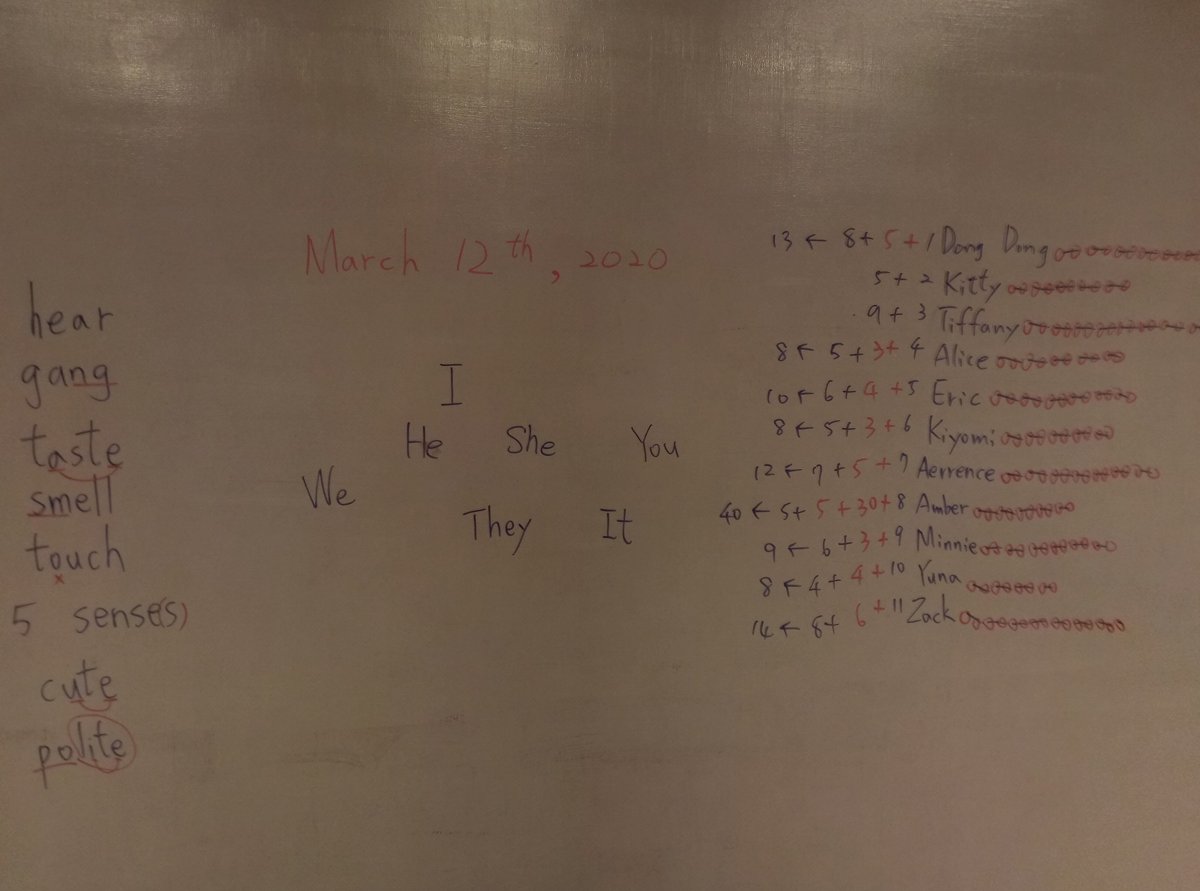 March 12th, 2020
hear
gang
taste
smell
touch
x
5 sense(s)
cute
polite
I
He She You
We
They It
13 ← 8+ 5 + 1 Dong Dong
5 + 2 Kitty
9 + 3 Tiffany
8 ← 5 + 3 + 4 Alice
10 ← 6 + 4 + 5 Eric
8 ← 5 + 3 + 6 Kiyomi
12 ← 7 + 5 + 7 Aerrence
40 ← 5 + 5 + 30 + 8 Amber
9 ← 6 + 3 + 9 Minnie
8 ← 4 + 4 + 10 Yuna
14 ← 8 + 6 + 11 Zack